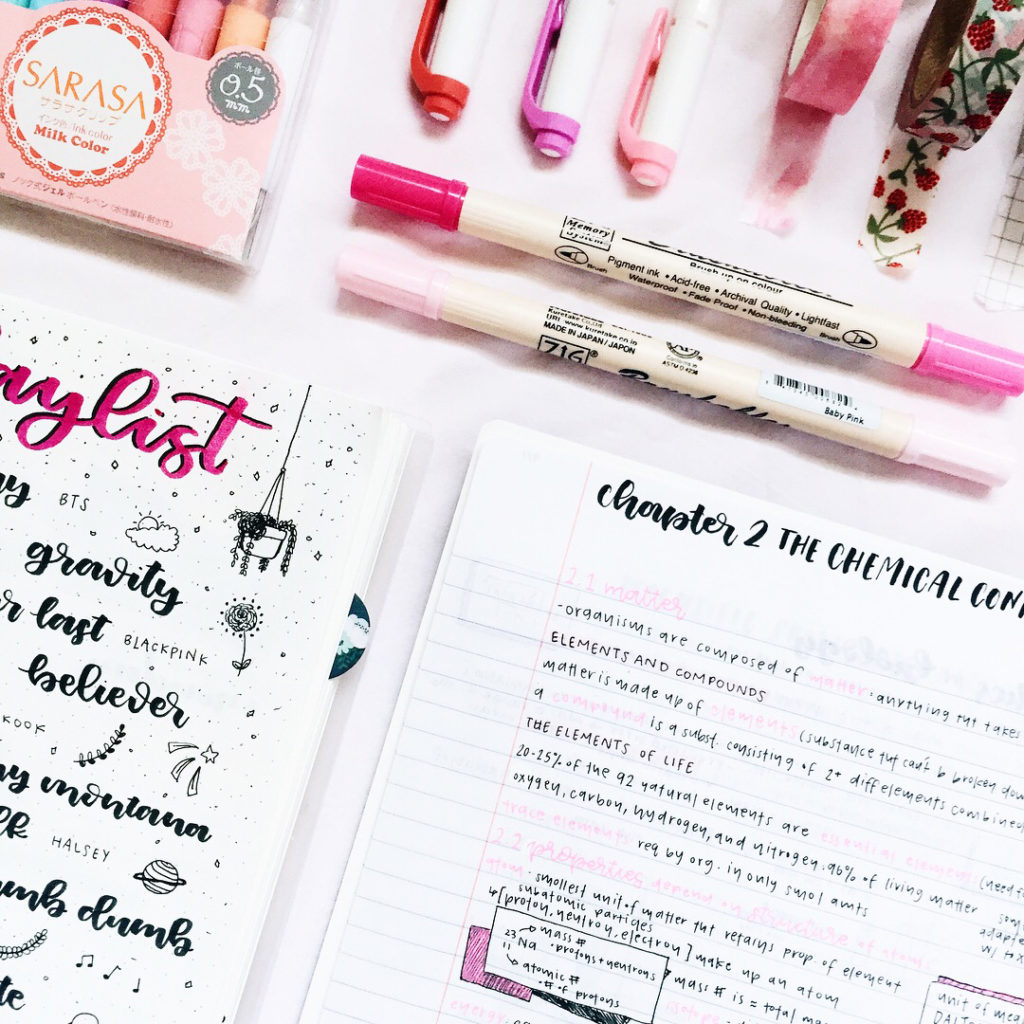 SARASA
サラサクリップ
インク色 ink color
Milk Color
ボール径
0.5
mm
ノック式ジェルボールペン(水性顔料・耐水性)
Memory
System
Brush
Brush up on colour
Pigment ink • Acid-free • Archival Quality • Lightfast
Waterproof • Fade Proof • Non-bleeding
Brush
Kuretake Co.,Ltd
URL www.kuretake.co.jp
MADE IN JAPAN / JAPON
ASTM D-4236
Baby Pink
aylist
BTS
gravity
last BLACKPINK
believer
KOOK
montana
HALSEY
umb dumb
chapter 2 THE CHEMICAL CON
2.1 matter
-organisms are composed of matter: anything tht takes
ELEMENTS AND COMPOUNDS
matter is made up of elements (substance tht can't b broken dow
a compound is a subst. consisting of 2+ diff elements combined
THE ELEMENTS OF LIFE
20-25% of the 92 natural elements are essential elements (need t
oxygen, carbon, hydrogen, and nitrogen: 96% of living matter
trace elements: req by org. in only smol amts
2.2 properties depend on structure of atoms
atom: smallest unit of matter tht retains prop of element
subatomic particles
↳[proton, neutron, electron] make up an atom
23 → mass #
11 Na • protons + neutrons
↳ atomic #
• # of protons
mass # is = total mas
isotope
energy
unit of mea
DALT